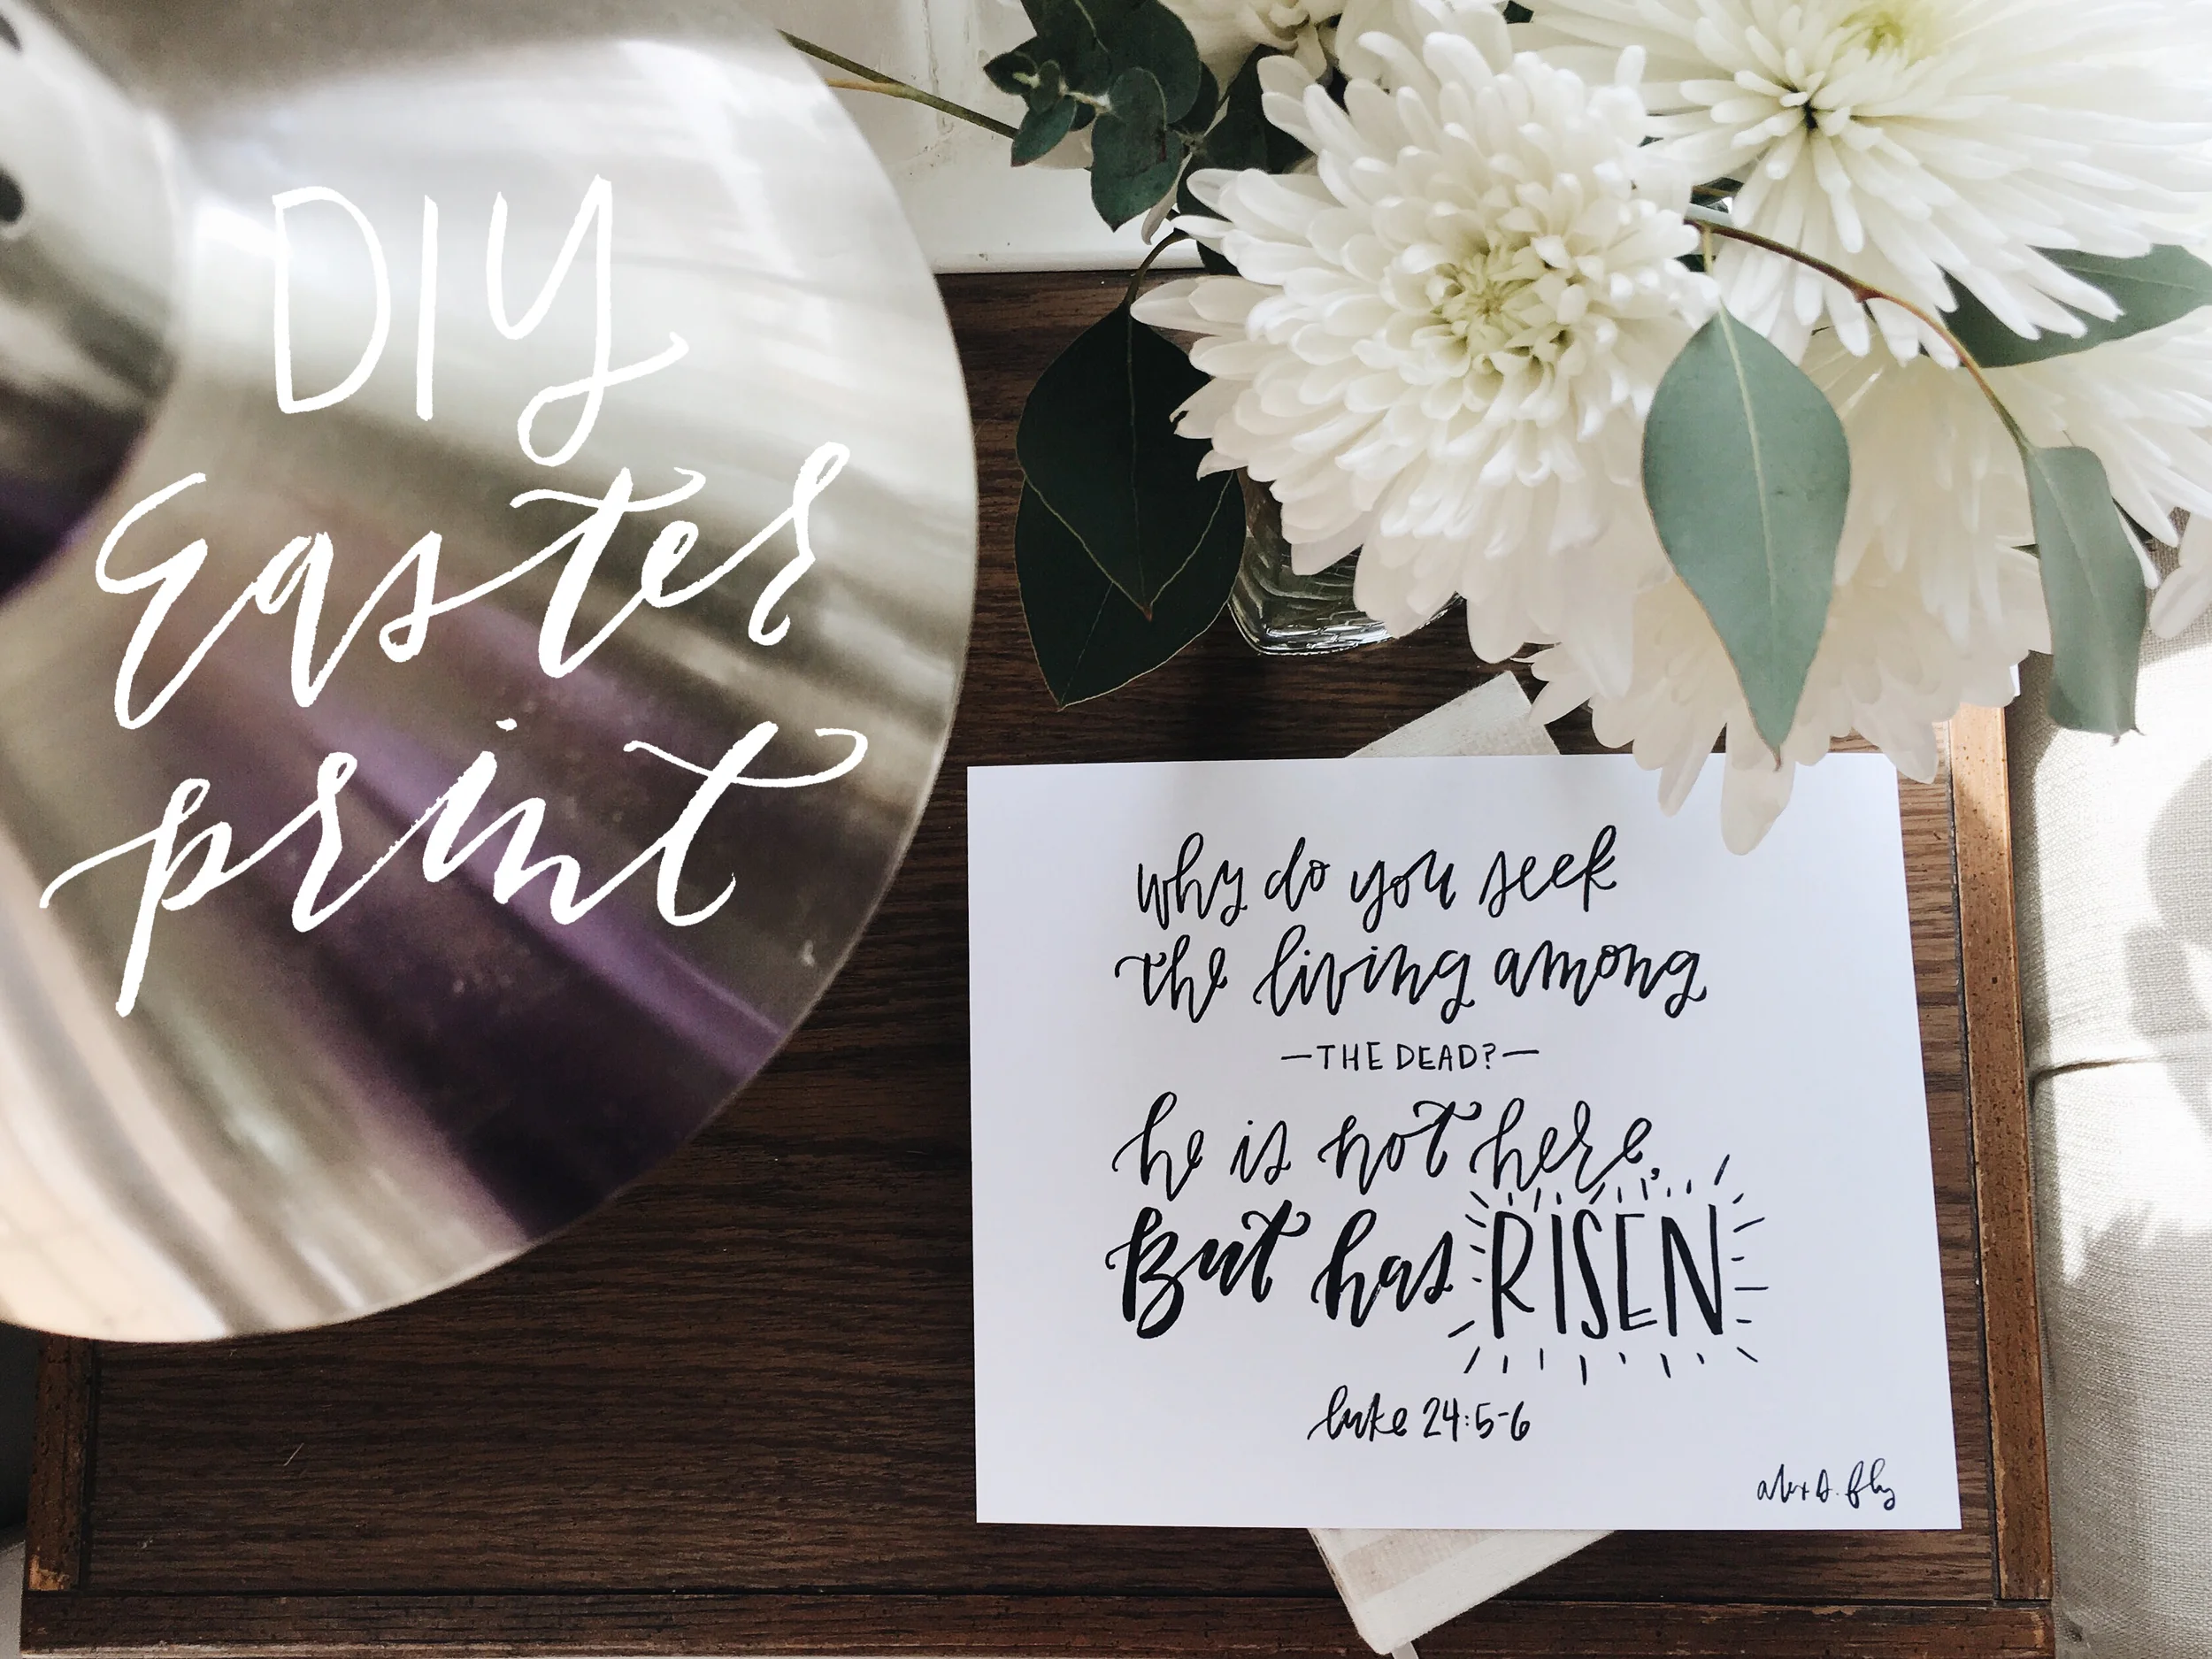 DIY
Easter
print
why do you seek
the living among
—THE DEAD?—
he is not here,
But has RISEN
luke 24:5-6